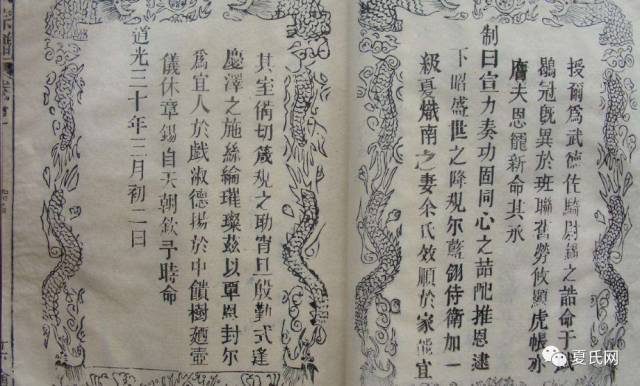 授爾為武德佐騎尉錫之誥命于戲
鶡冠旣異於班聯舊勞攸顯虎帳亦
膺夫恩寵新命其承
制曰宣力奏功固同心之誥配推恩逮
下昭盛世之隆規尔藍翎侍衛加一
級夏熾南之妻余氏效順於家能宜
其室儆切箴規之助宵旦殷勤式逢
慶澤之施絲綸璀璨茲以覃恩封尔
為宜人於戲淑德揚於中饋樹廼壼
儀休章錫自天朝欽予時命
道光三十年三月初二日
夏氏网